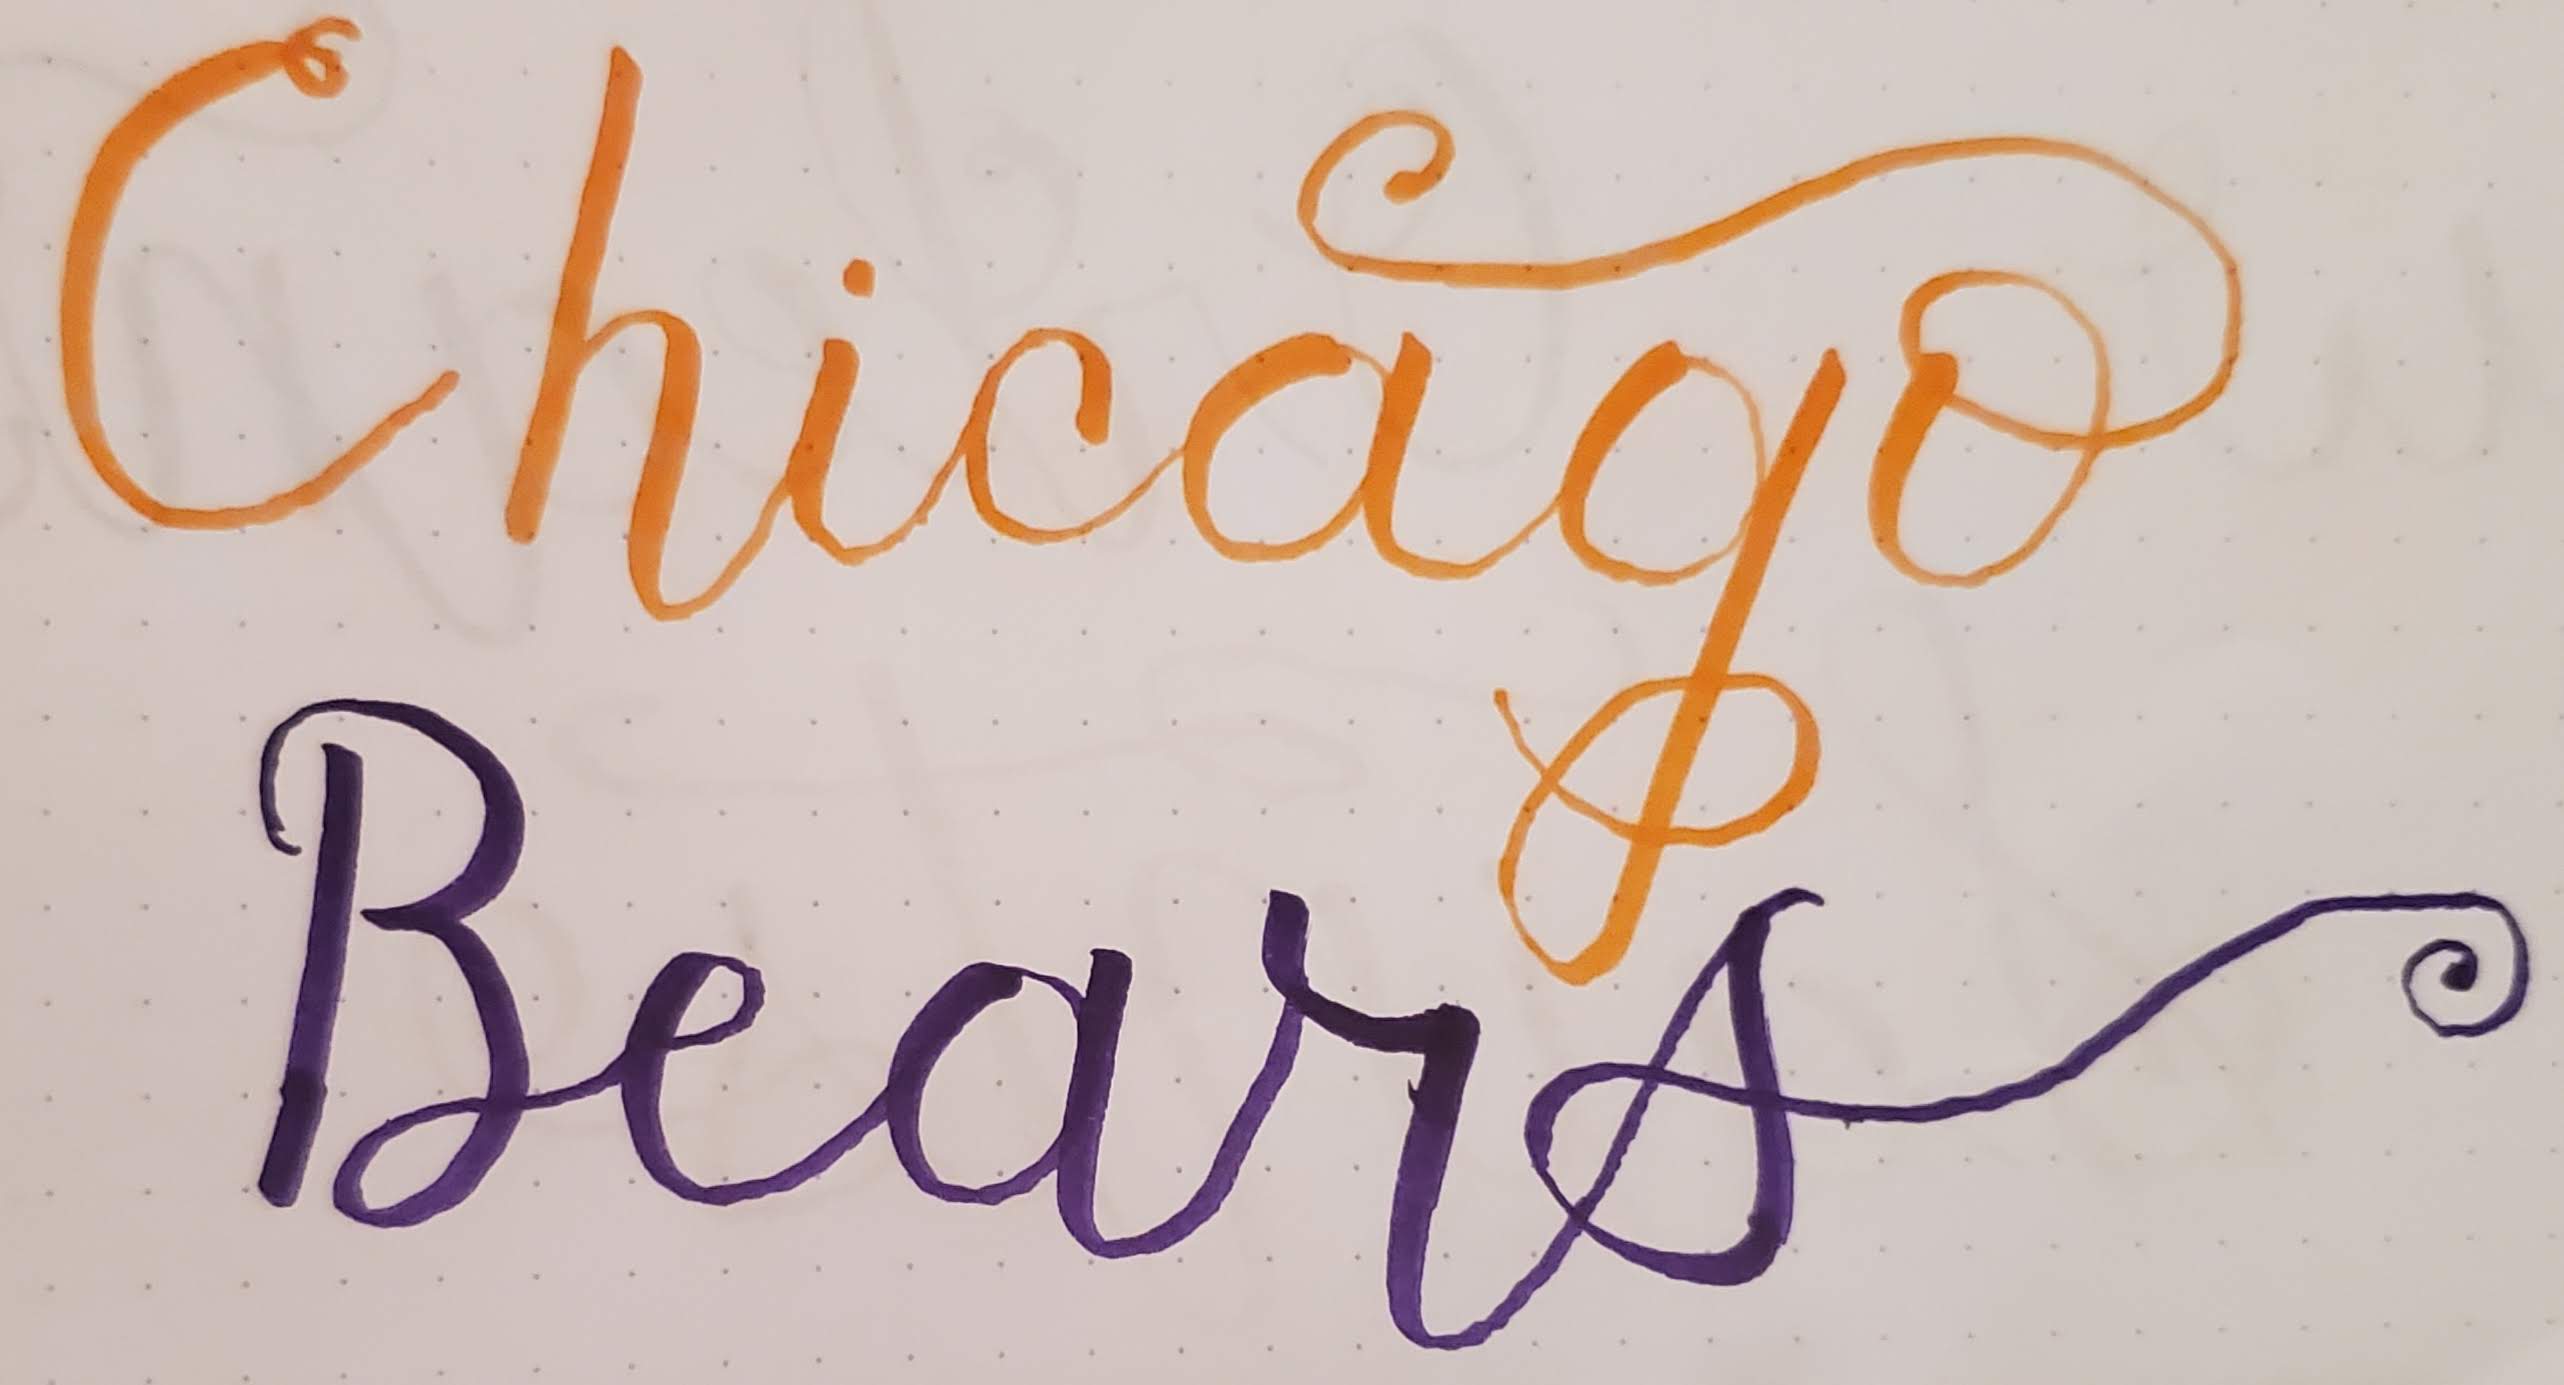 Chicago
Bears